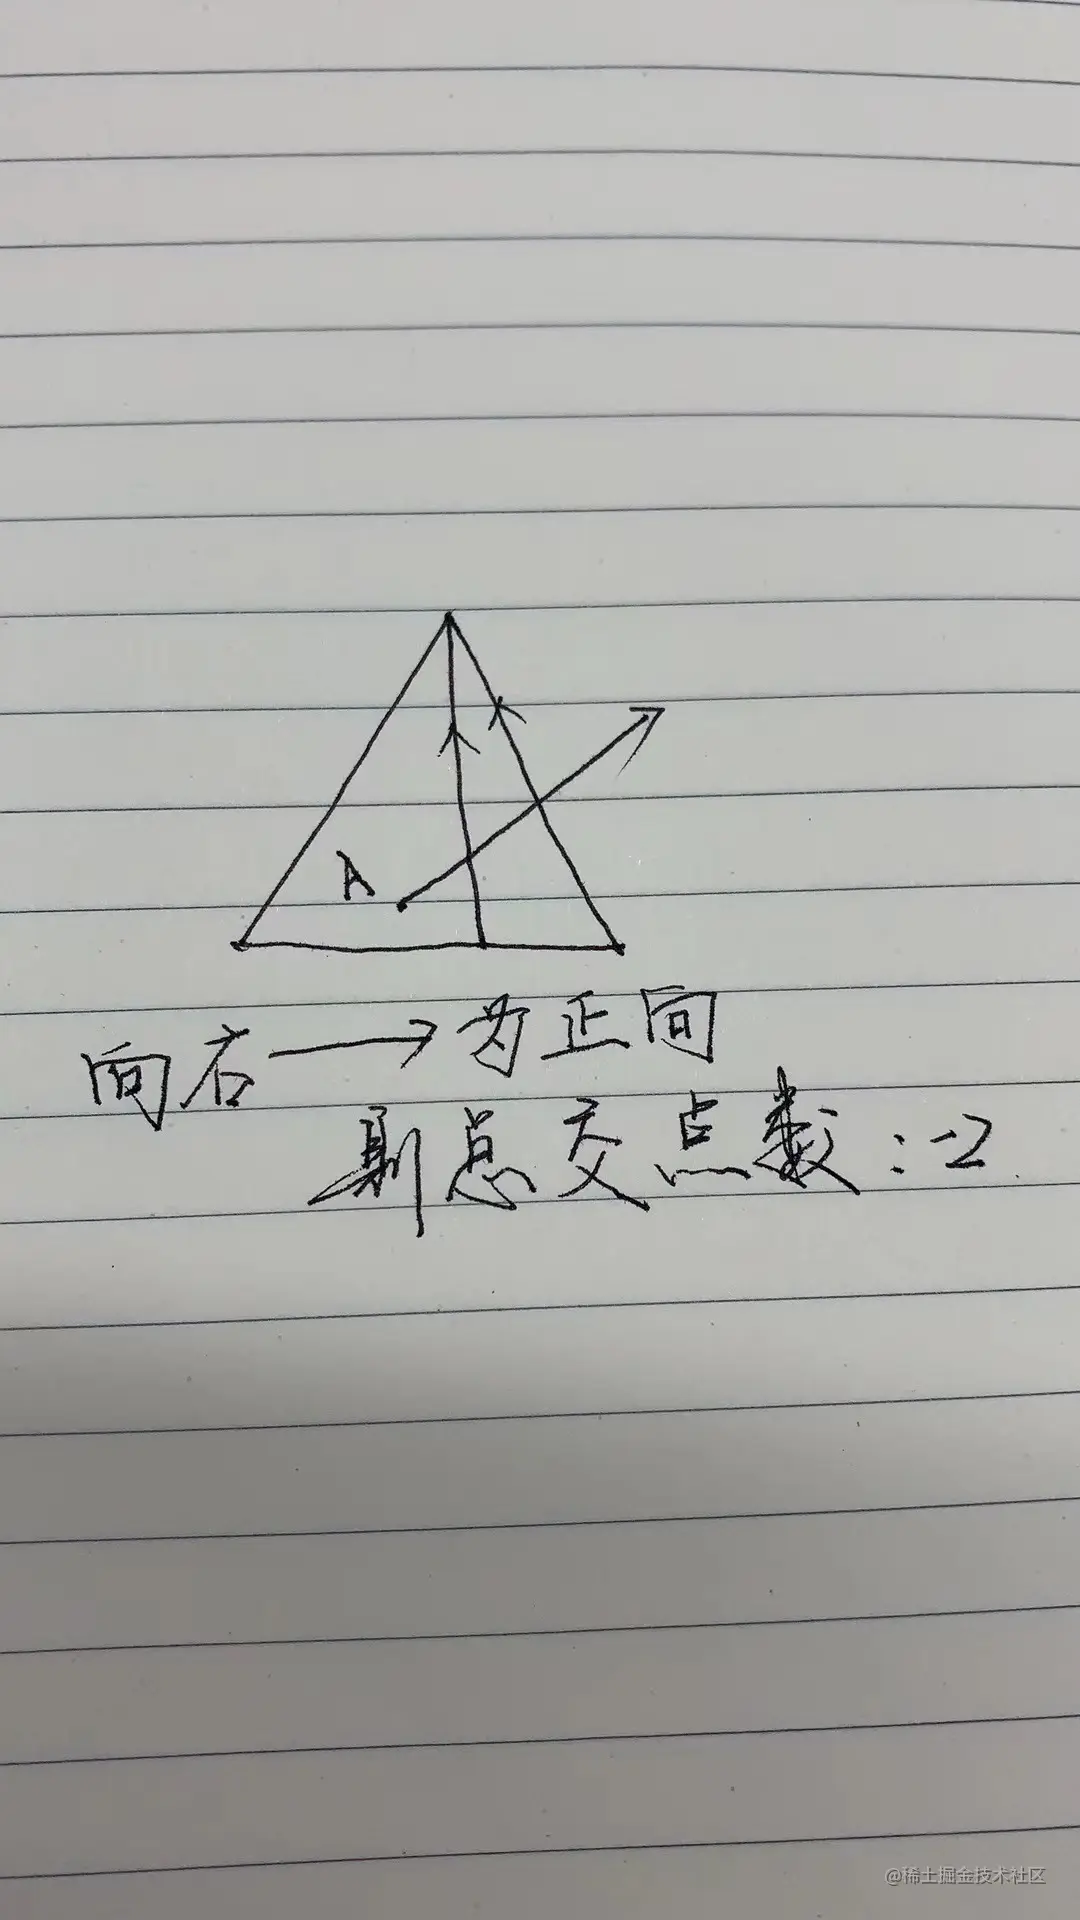 A
向右→为正向
则总交点数:-2
@稀土掘金技术社区